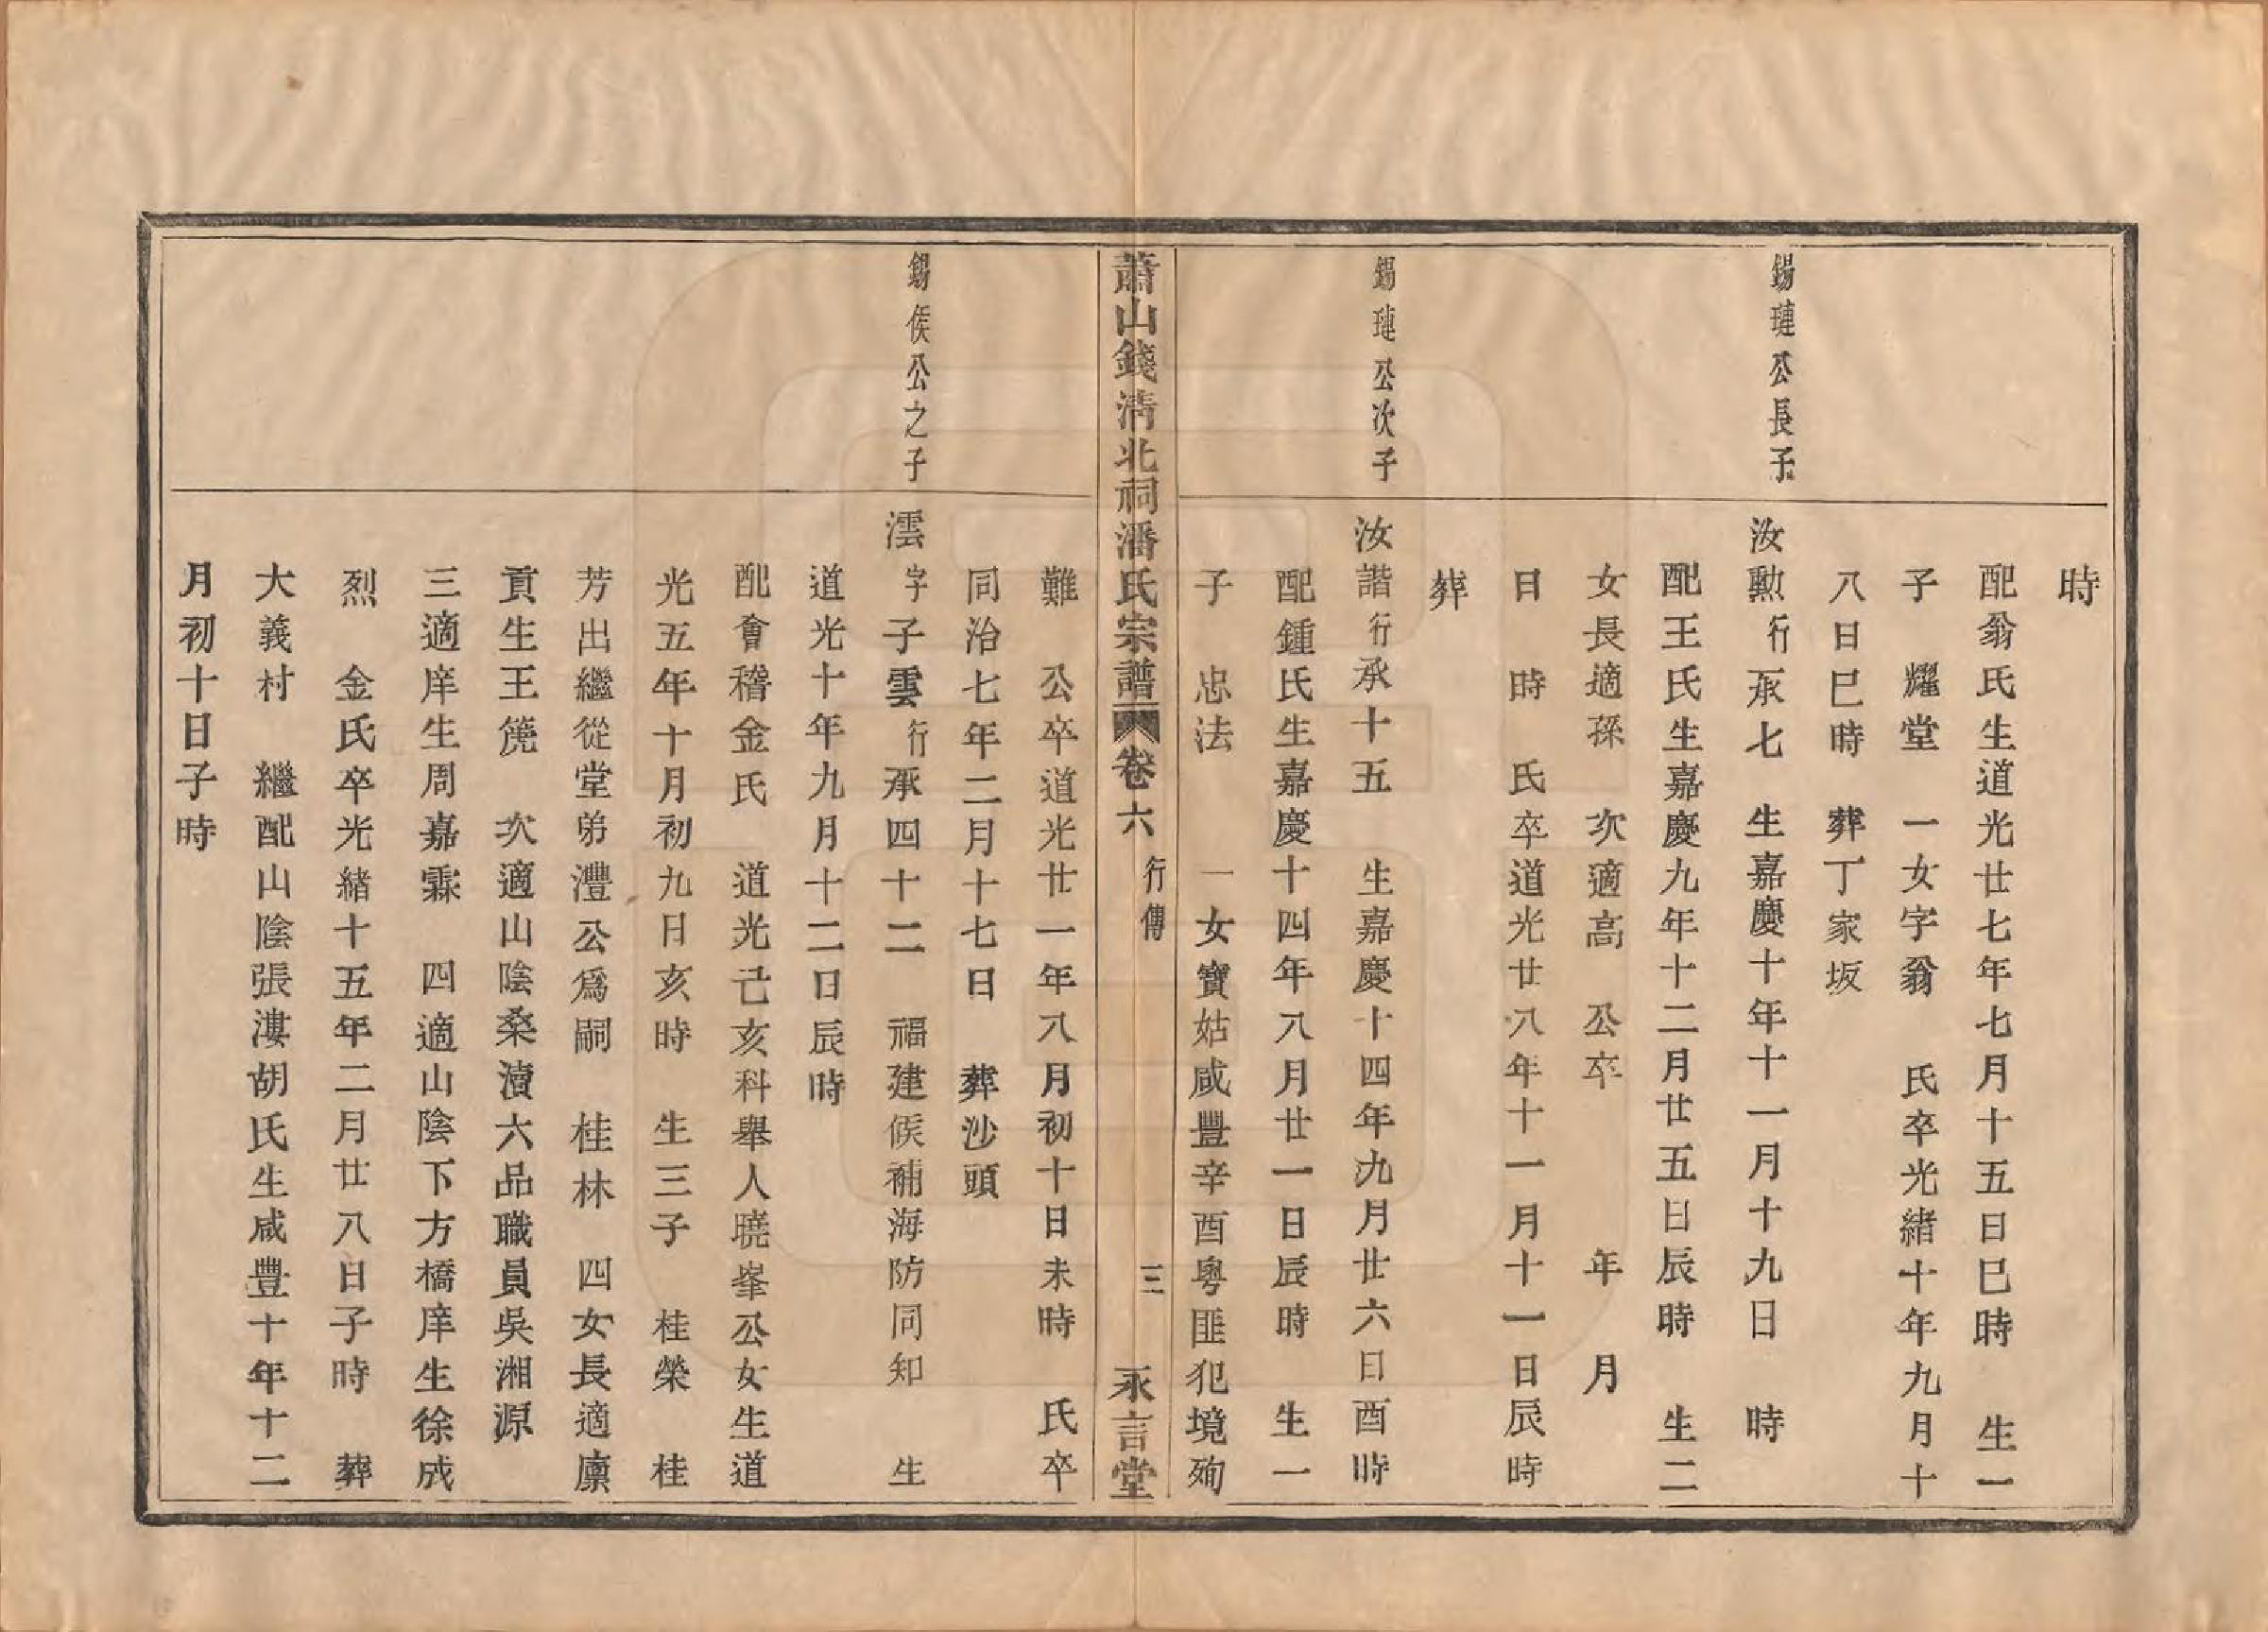 時
配翁氏生道光廿七年七月十五日巳時　生一
子　耀堂　一女字翁　氏卒光緒十年九月十
八日巳時　葬丁家坂
錫璉公長子
汝勲行承七　生嘉慶十年十一月十九日　時
配王氏生嘉慶九年十二月廿五日辰時　生二
女長適孫　次適高　公卒　　　年　月
日　時　氏卒道光廿八年十一月十一日辰時
葬
錫璉公次子
汝諧行承十五　生嘉慶十四年九月廿六日酉時
配鍾氏生嘉慶十四年八月廿一日辰時　生一
子　忠法　　一女寶姑咸豐辛酉粵匪犯境殉
蕭山錢清北祠潘氏宗譜　卷六　行傳　三　永言堂
難　公卒道光廿一年八月初十日未時　氏卒
同治七年二月十七日　葬沙頭
錫侯公之子
澐字子雲行承四十二　福建候補海防同知　生
道光十年九月十二日辰時
配會稽金氏　道光己亥科舉人曉峯公女生道
光五年十月初九日亥時　生三子　桂榮　桂
芳出繼從堂弟灃公爲嗣　桂林　四女長適廩
貢生王篪　次適山陰桑瀆六品職員吳湘源
三適庠生周嘉霖　四適山陰下方橋庠生徐成
烈　金氏卒光緒十五年二月廿八日子時　葬
大義村　繼配山陰張漊胡氏生咸豐十年十二
月初十日子時